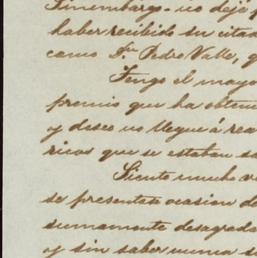 Sinembargo no deje
haber recibido su
como Dn. Pedro Valle,
Tengo el mayo
premio que ha obten
y deseo no llegue á rea
ricos que se estaban sa
Siento mucho
se presentase ocasion de
sumamente desagrada
y sin saber nunca